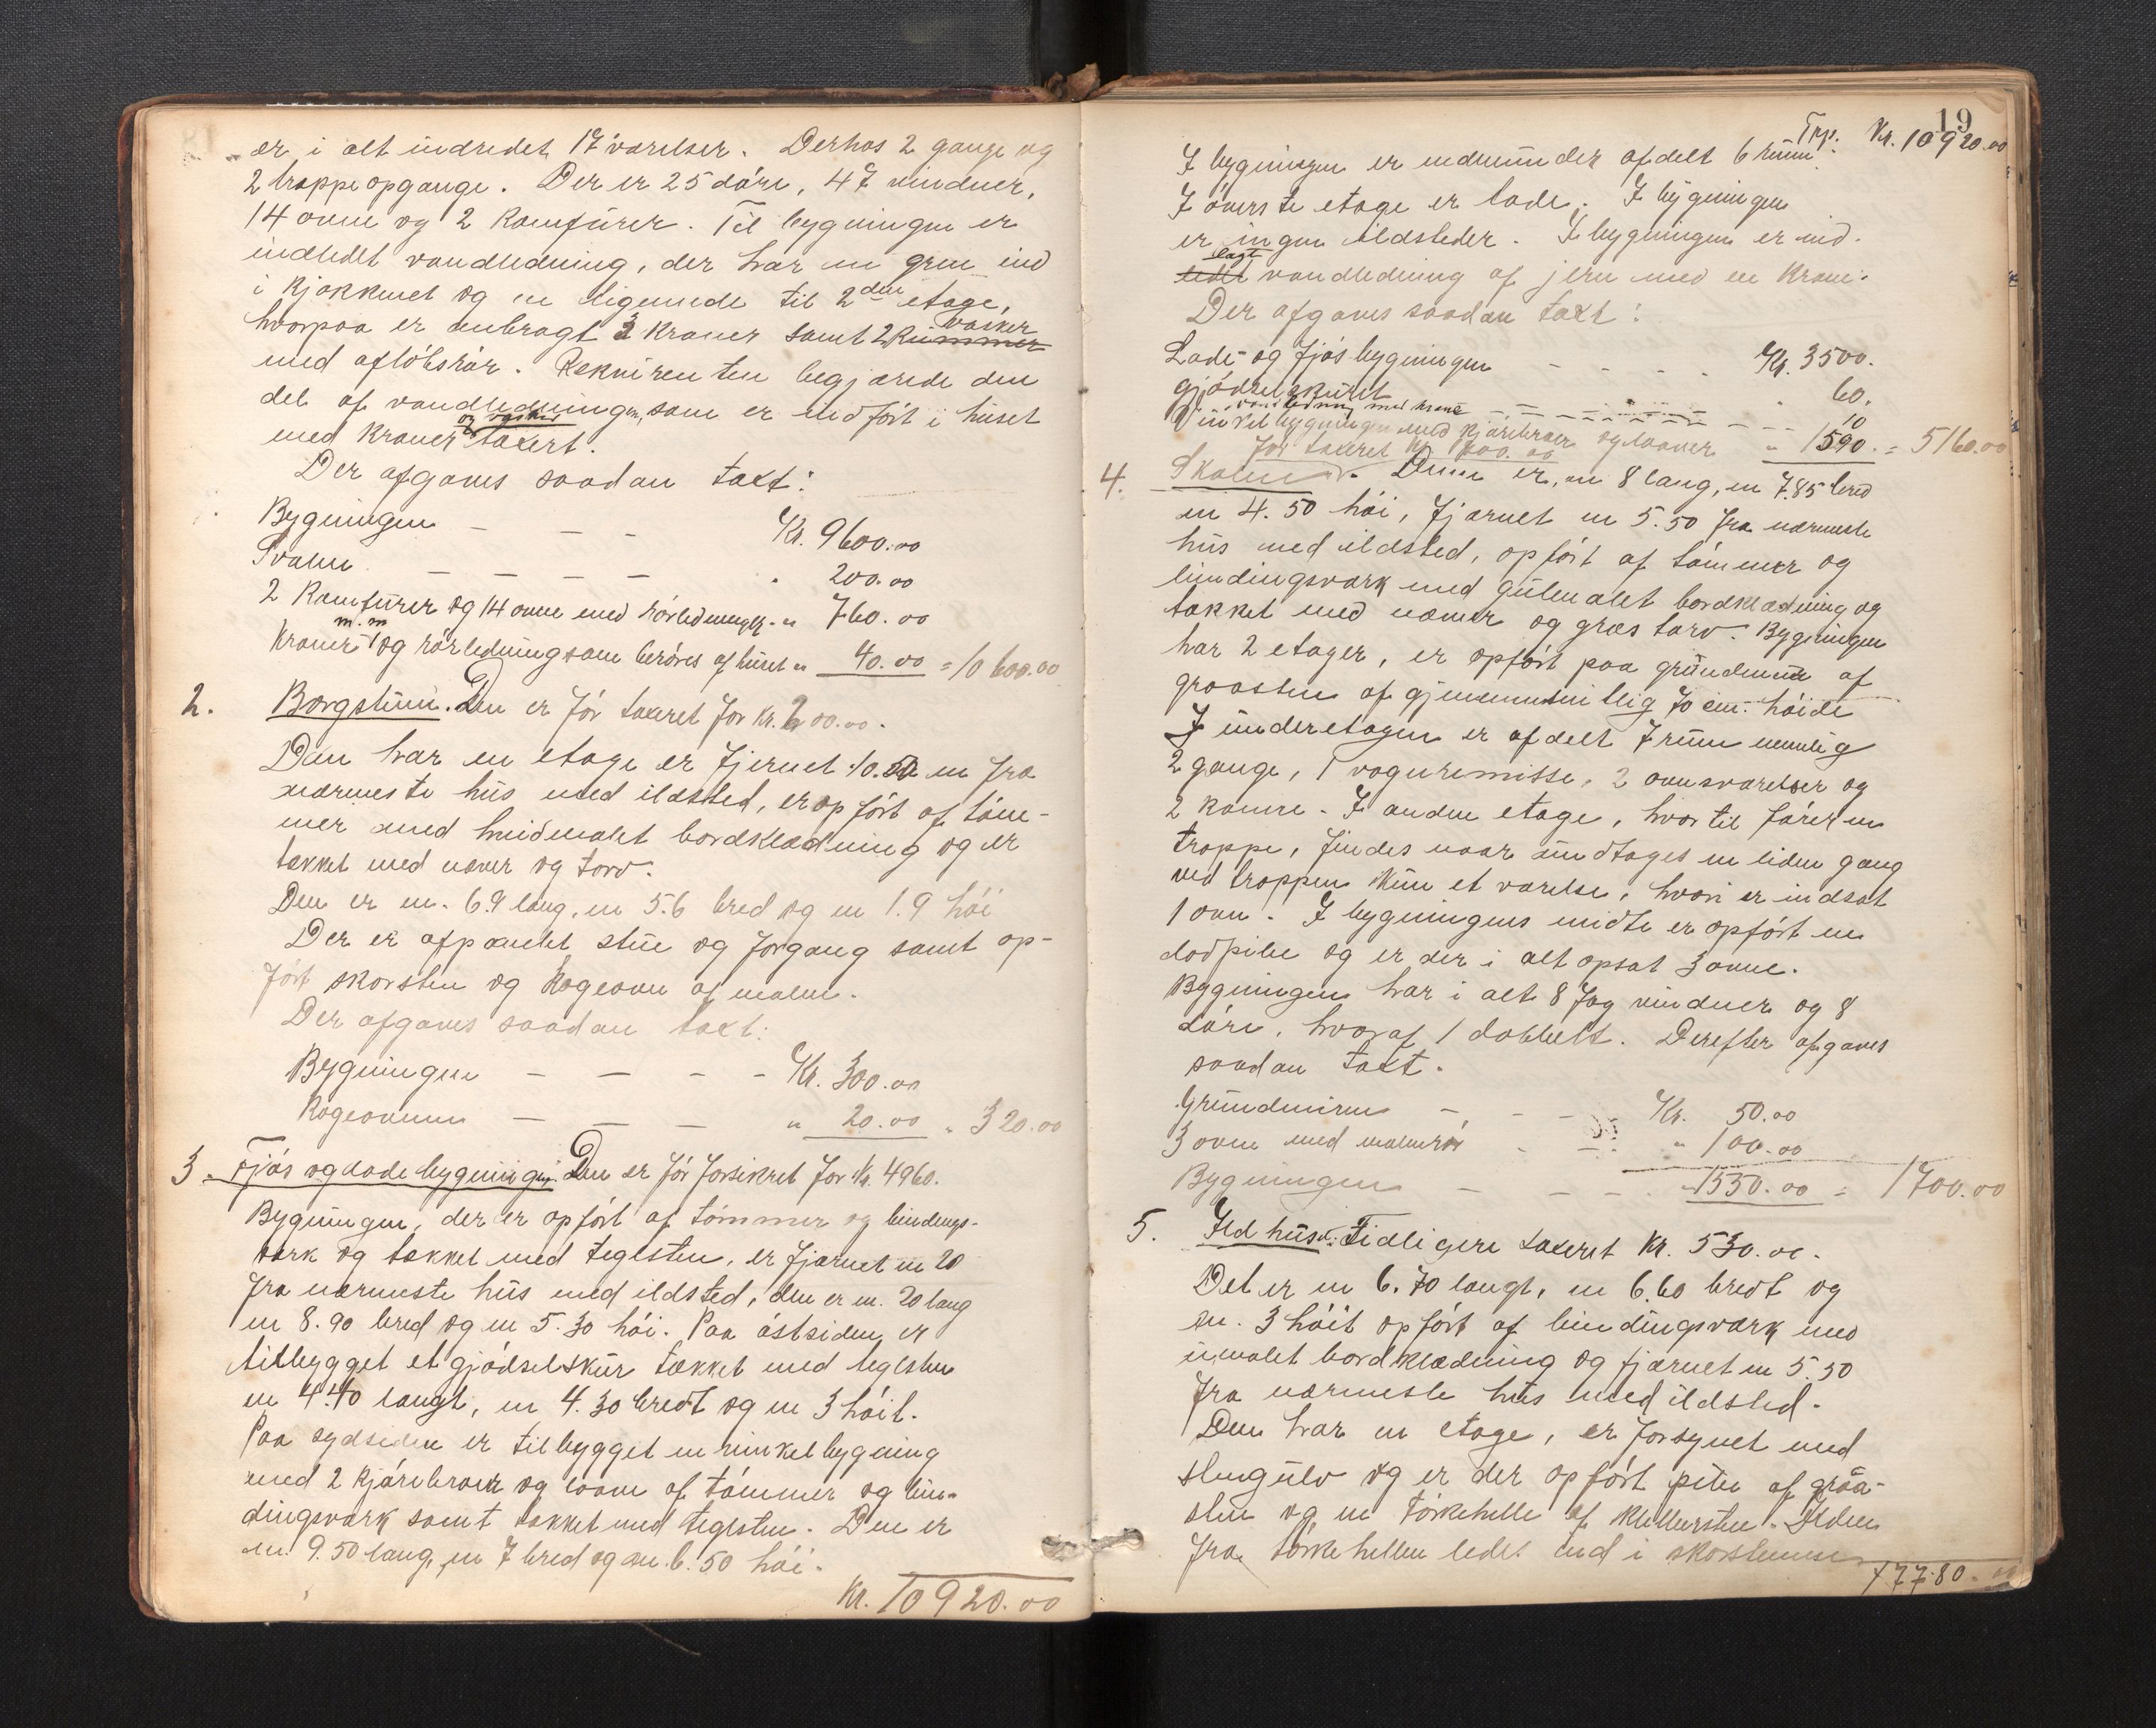 er i alt indredet 17 værelser. Derhos 2 gange og
2 trappeopgange. Der er 25 döre, 47 vinduer,
14 ovne og 2 Komfürer. Til bygningen er
indledet vandledning, der har en gren ind
i Kjøkkenet og en ligeende til 2den etage,
hvorpaa er anbragt 3 Kraner samt 2 Kummer vasker
med aflöbsrör. Rekvirenten begjærede den
del af vandledningen, som er indfört i huset
med Kraner og vasker taxert.
Der afgaves saadan taxt:
Bygningen — — — Kr. 9600.00
Svalen — — — — " 200.00
2 Komfürer og 14 ovne med rörledninger - " 760.00
Kraner m.m og rörledning som beröres af huset " 40.00 = 10 600.00
2. Borgstuen. Den er för taxeret for Kr. 200.00.
Den har en etage er fjernet 10.50 m fra
nærmeste hüs med ildsted, er opfört af töm-
mer med hvidmalet bordklædning og er
tækket med næver og torv.
Den er m. 6.9 lang, m 5.6 bred og m 1.9 höi
Der er afpanelet stue og forgang samt op-
fört skorsten og Kogeovn af malm.
Der afgaves saadan taxt:
Bygningen — — — — Kr. 300.00
Kogeovnen — — — " 20.00 " 320.00
3. Fjös og ladebygningen. Den er för forsikret for Kr. 4960.
Bygningen, der er opfört af tömmer og bindings-
værk og tækket med teglsten, er fjærnet m 20
fra nærmeste hüs med ildsted, den er m. 20 lang
m 8.90 bred og m 5.30 höi. Paa östsiden er
tilbygget et gjödselskür tækket med teglsten
m 4.40 langt, m 4.30 bredt og m 3 höit.
Paa sydsiden er tilbygget en vinkelbygning
med 2 kjörebroer og laave af tömmer og bin-
dingsværk samt tækket med teglsten. Den er
m. 9.50 lang, m 7 bred og m. 6.50 höi.
Kr. 10920.00
19
Trp. Kr. 10920.00
I bygningen er nedenunder afdelt 6 rüm
I överste etage er lade. I bygningen
er ingen ildsteder. I bygningen er ind-
ledt lagt vandledning af jern med en Krane.
Der afgaves saadan taxt:
Lade- og fjösbygningen - - - - Kr. 3500.
Gjödselsküret " 60.
vandledning med krane — — — — 10
Vinkelbygningen med kjörebroer og laaver " 1590. = 5160.00
För taxeret Kr. 1400.00
4. Skolen. Denne er m 8 lang, m 7.85 bred
m 4.50 höi, fjærnet m 5.50 fra nærmeste
hüs med ildsted, opfört af tömmer og
bindingsværk med gulmalet bordklædning og
tækket med næver og græstorv. Bygningen
har 2 etager, er opfört paa gründmur af
graasten af gjennemsnitlig 70 cm. höide
I underetagen er afdelt 7 rüm nemlig
2 gange, 1 vognremisse, 2 ovnsværelser og
2 kamre. I anden etage, hvortil förer en
trappe, findes naar undtages en liden gang
ved trappen Kün et værelse, hvori er indsat
1 ovn. I bygningens midte er opfört en
dodpibe og er der i alt opsat 3 ovne.
Bygningen har i alt 8 fag vinduer og 8
döre, hvoraf 1 dobbelt. Derefter afgaves
saadan taxt.
Gründmuren - - - Kr. 50.00
3 ovne med malmrör - - " 100.00
Bygningen — — — — " 1550.00 = 1700.00
5. Ildhuset. Tidligere taxeret Kr. 530.00.
Det er m 6.70 langt, m 6.60 bredt og
m. 3 höit opfört af bindingsværk med
umalet bordklædning og fjærnet m 5.50
fra nærmeste hüs med ildsted.
Den har en etage, er forsynet med
stengulv og er der opfört pibe af graa-
sten og en törkehelle af klebersten. Ilden
fra törkehellen ledes ind i skorstenen
17780.00